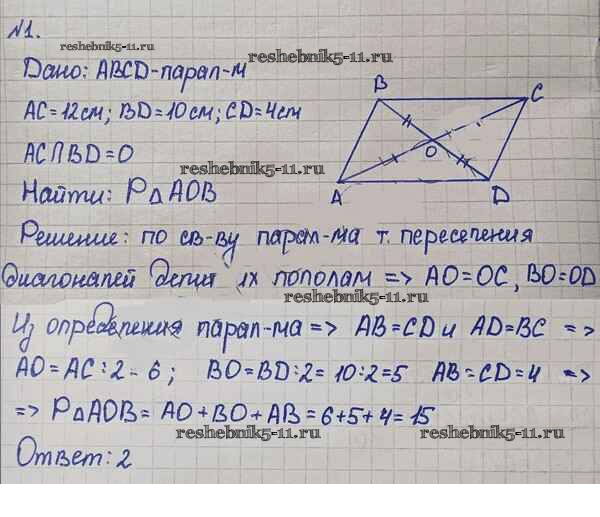 №1.
reshebnik5-11.ru
reshebnik5-11.ru
Дано: ABCD-парал-м
AC=12см; BD=10см; CD=4см
AC∩BD=O
reshebnik5-11.ru
Найти: P△AOB
B
C
O
A
D
Решение: по св-ву парал-ма т. пересечения
диагоналей делит их пополам => AO=OC, BO=OD
reshebnik5-11.ru
Из определения парал-ма => AB=CD и AD=BC =>
AO=AC:2=6; BO=BD:2=10:2=5 AB=CD=4 =>
=> P△AOB=AO+BO+AB=6+5+4=15
reshebnik5-11.ru
reshebnik5-11.ru
Ответ: 2